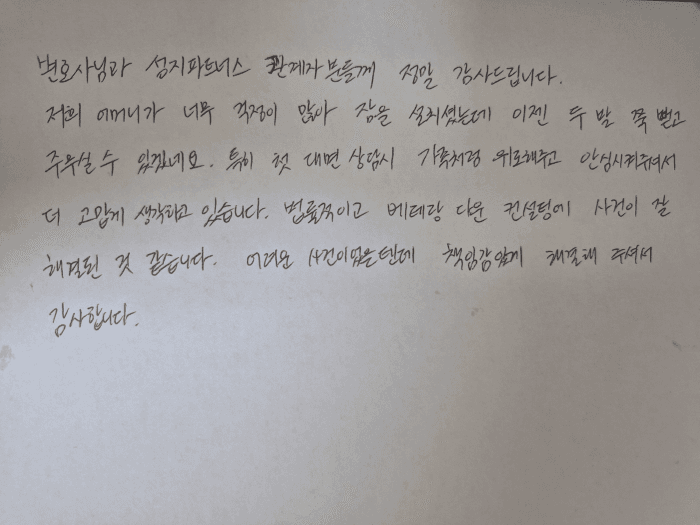 변호사님과 성지파트너스 관계자분들께 정말 감사드립니다.
저희 어머니가 너무 걱정이 많아 잠을 설치셨는데 이젠 두 발 쭉 뻗고
주무실 수 있겠네요. 특히 첫 대면 상담시 가족처럼 위로해주고 안심시켜주셔서
더 고맙게 생각하고 있습니다. 법률적이고 베테랑 다운 컨설팅에 사건이 잘
해결된 것 같습니다. 어려운 사건이었을텐데 책임감있게 해결해 주셔서
감사합니다.